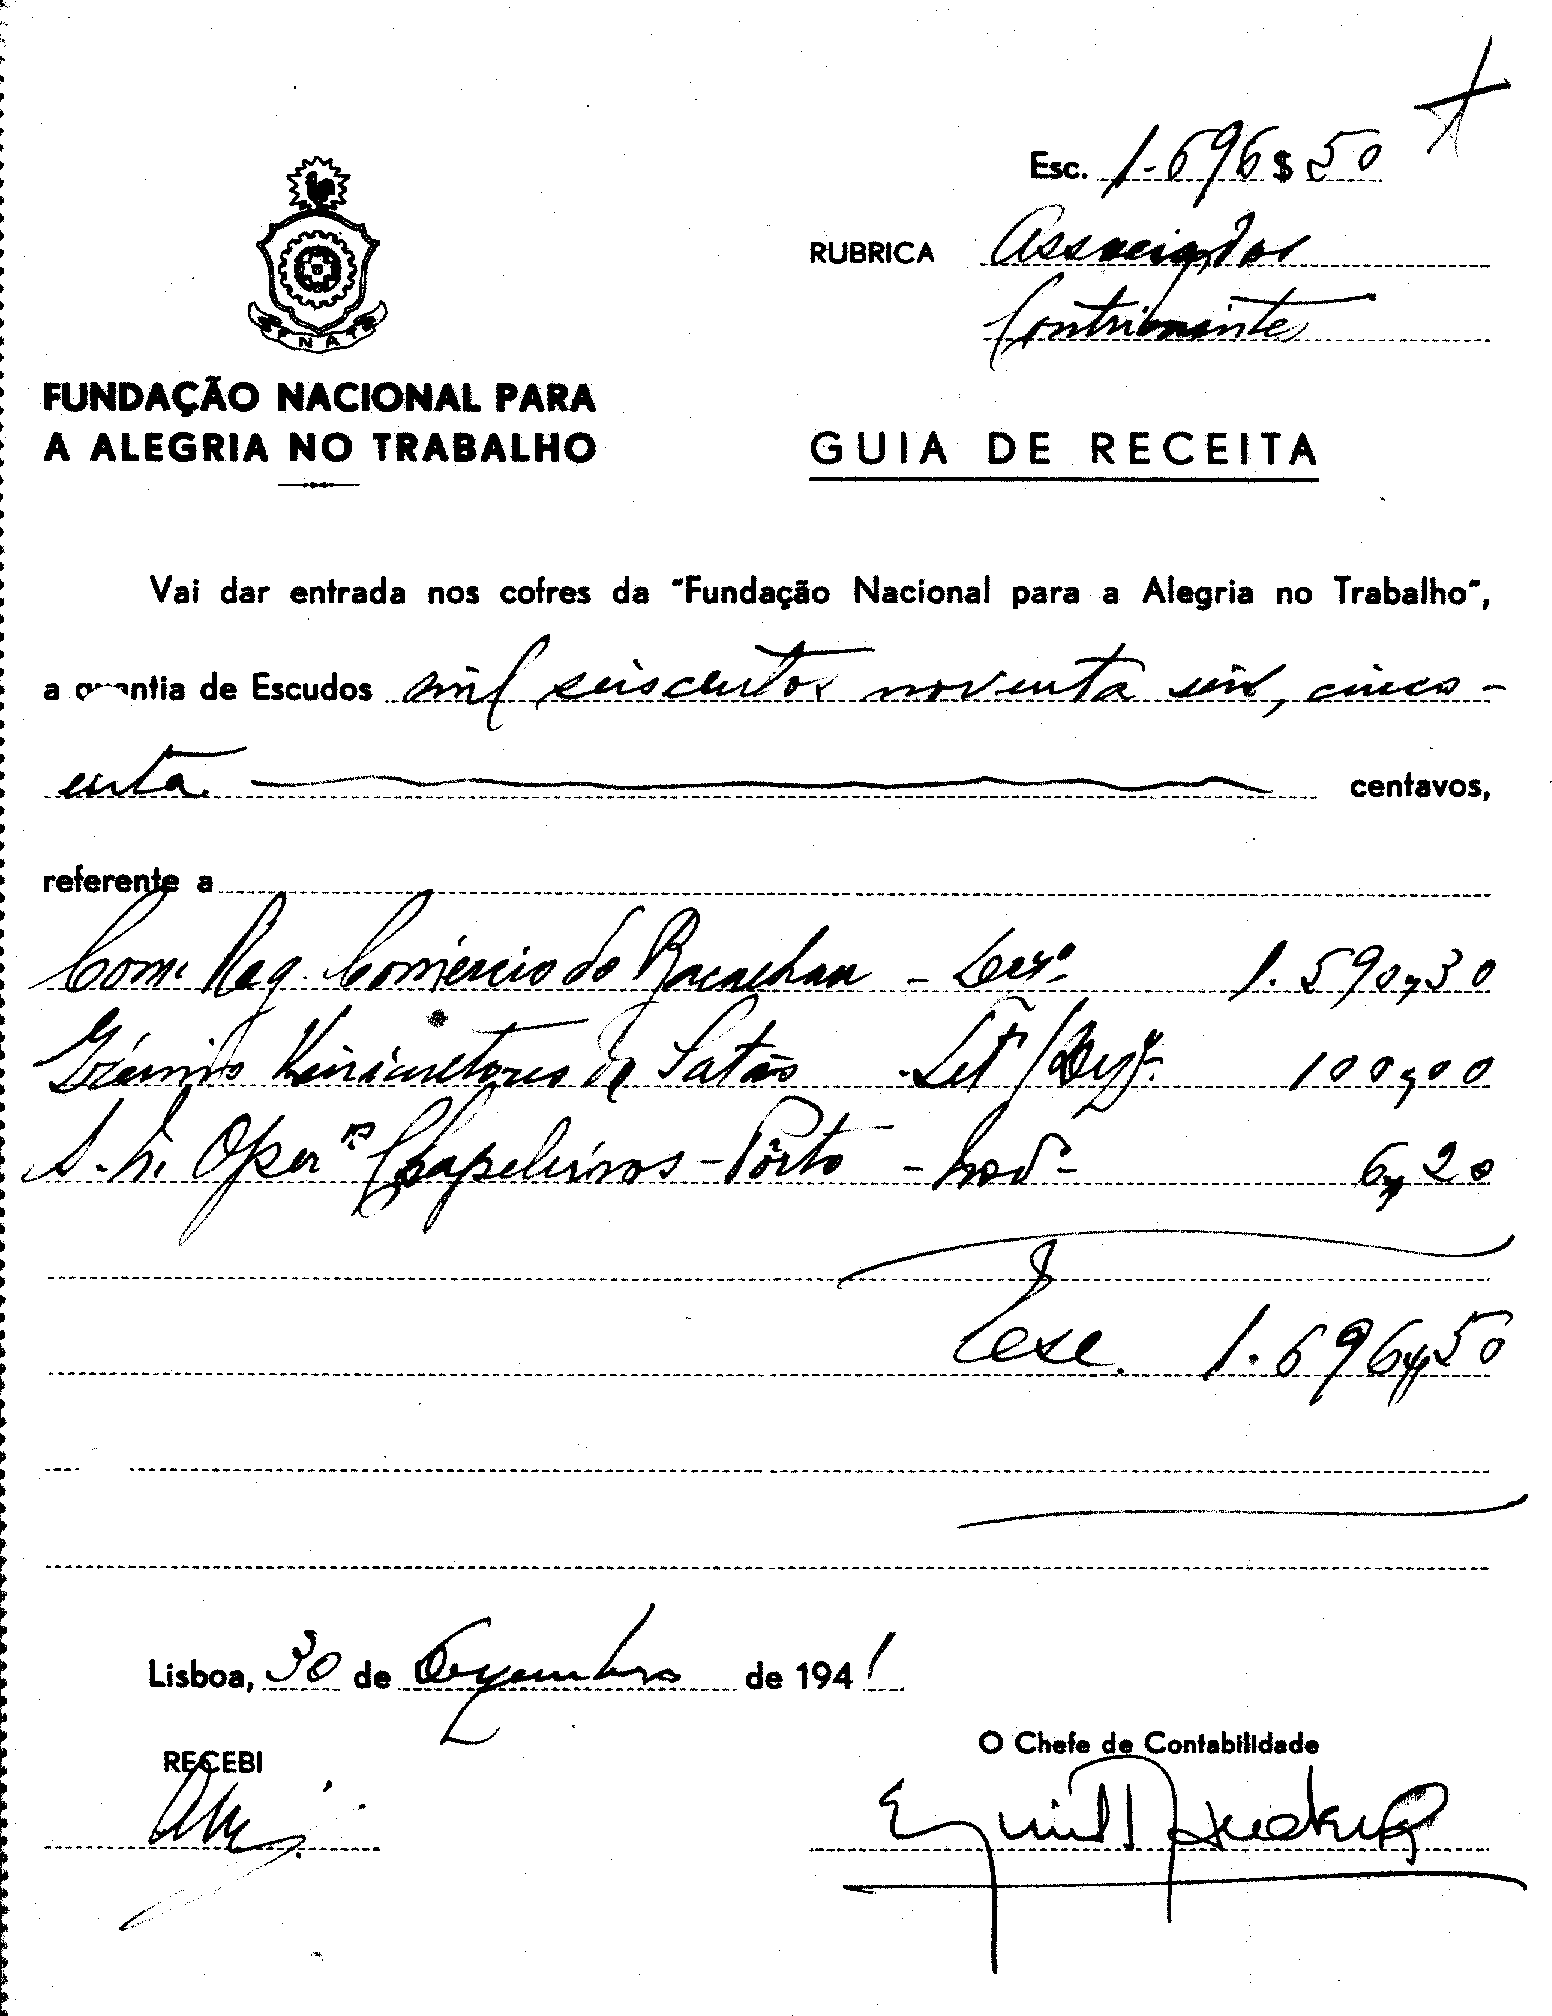 Esc. 1.696 $ 50
RUBRICA Associados
Contribuintes
FNAT
FUNDAÇÃO NACIONAL PARA
A ALEGRIA NO TRABALHO
GUIA DE RECEITA
Vai dar entrada nos cofres da "Fundação Nacional para a Alegria no Trabalho",
a quantia de Escudos mil seiscentos noventa seis, cinco-
enta centavos,
referente a
Com. Reg. Comércio do Bacalhau - Dezº 1.590,30
Grémio Vinicultores de Satão - Set/Dezº 100,00
S. N. Oper ºs Chapeleiros - Pôrto - Novº - 6,20
Esc. 1.696,50
Lisboa, 30 de Dezembro de 1941
RECEBI
O Chefe de Contabilidade